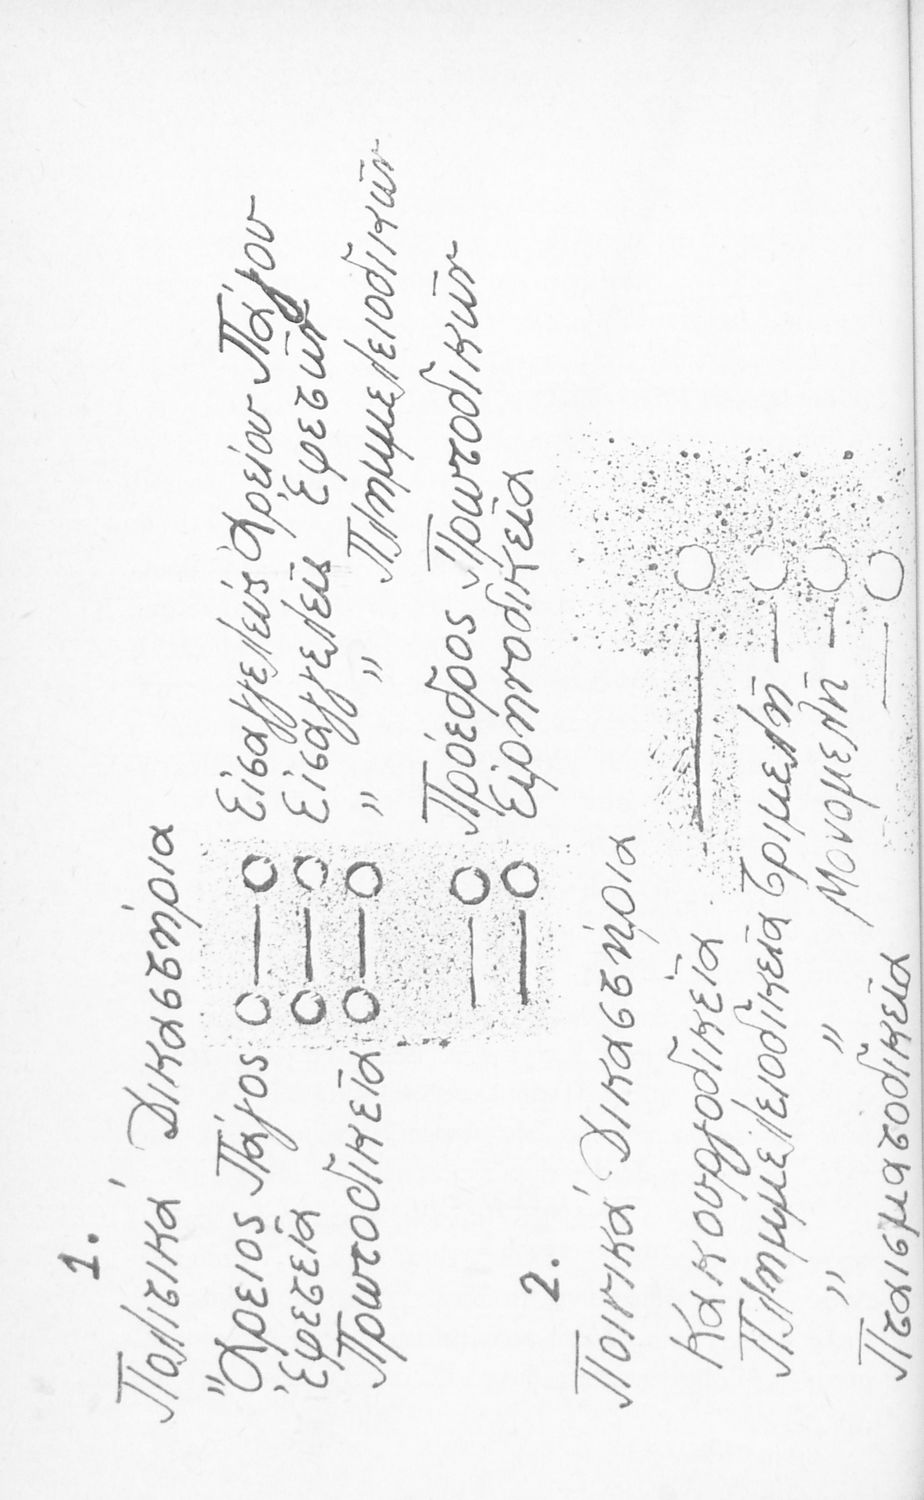 1.
Πολιτικά Δικαστήρια
Ἄρειος Πάγος Ο — Ο Εἰσαγγελεύς Ἀρείου Πάγου
Ἐφετεῖα Ο — Ο Εἰσαγγελεῖς Ἐφετῶν
Πρωτοδικεῖα Ο — Ο " " Πλημμελειοδικῶν
— Ο Πρόεδρος Πρωτοδικῶν
— Ο Εἰρηνοδικεῖα
2.
Ποινικά Δικαστήρια
Κακουργοδικεῖα — Ο
Πλημμελειοδικεῖα Τριμελῆ — Ο
" " Μονομελῆ — Ο
Πταισματοδικεῖα — Ο